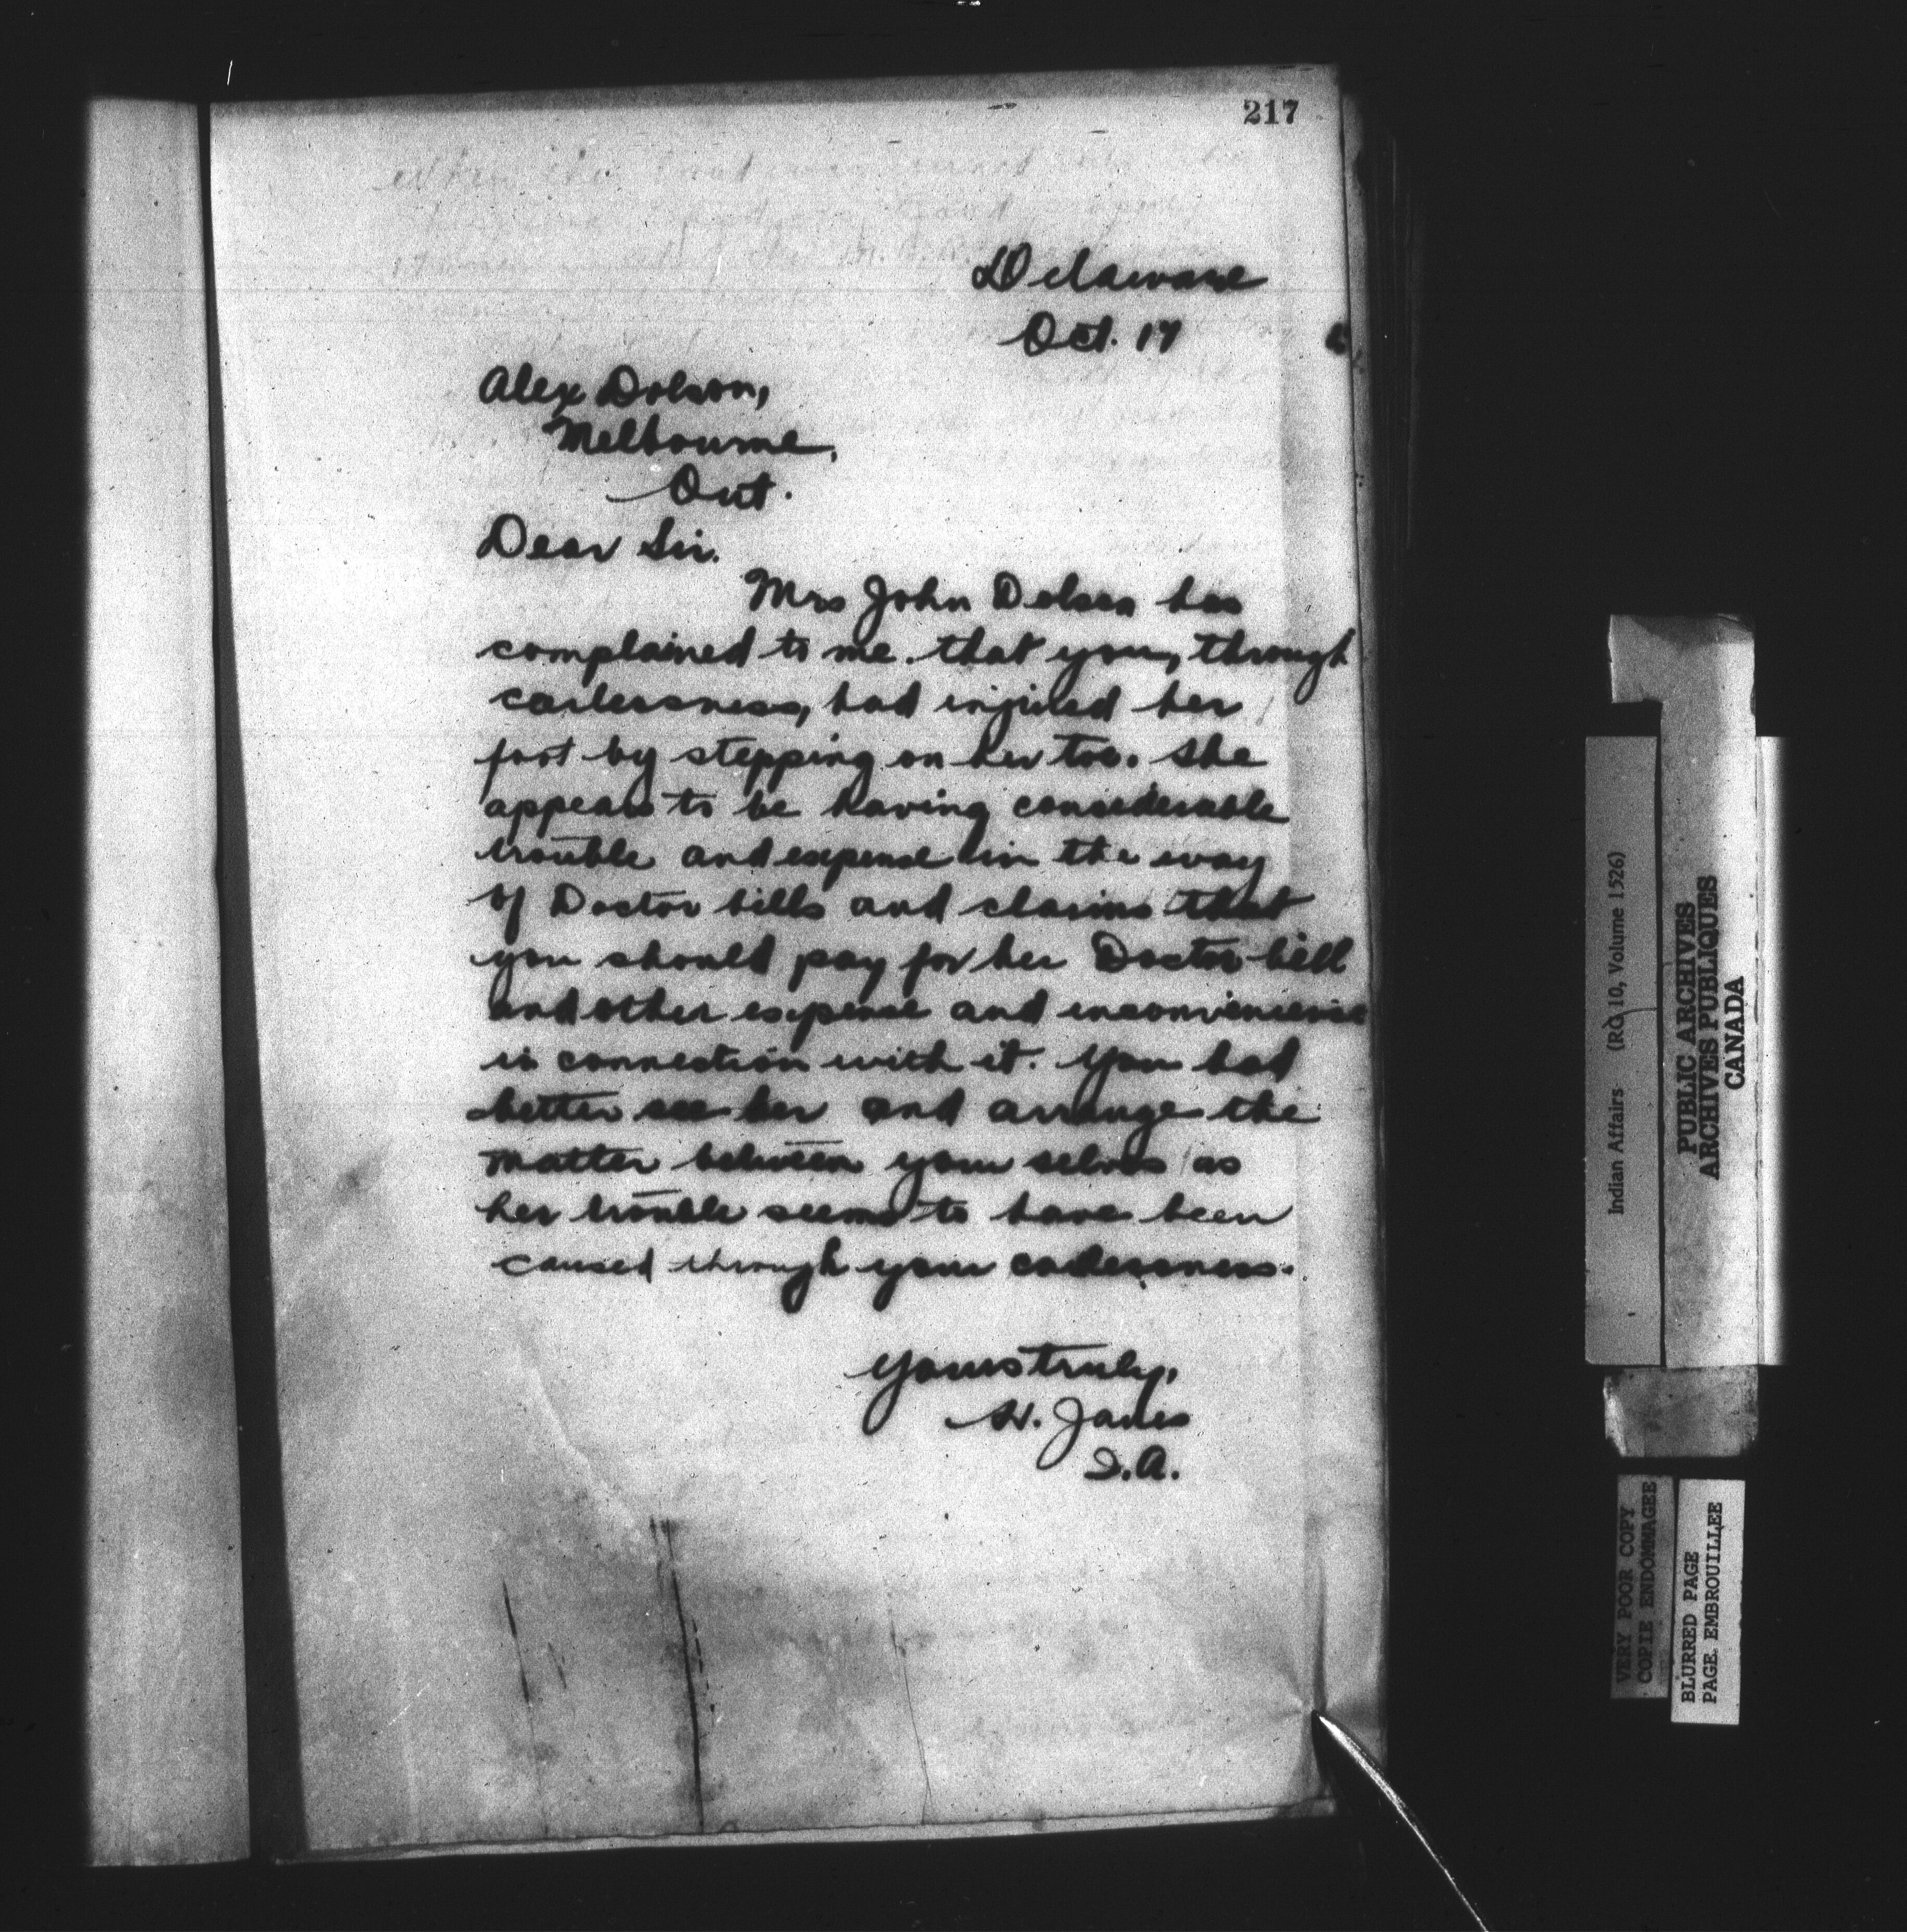 217
Delaware
Oct. 17
Alex Dolson,
Melbourne,
Ont.
Dear Sir.
Mrs John Dolson has
complained to me that you, through
carlessness, had injured her
foot by stepping on her toe. She
appears to be having considerable
trouble and expense in the way
of Doctor bills and claims that
you should pay for her Doctor bill
and other expense and inconvenience
in connection with it. You had
better see her and arrange the
matter between your selves as
her trouble seems to have been
caused through your carlessness.
Yours truly,
I.A.
Indian Affairs (RG 10, Volume 1526)
PUBLIC ARCHIVES
ARCHIVES PUBLIQUES
CANADA
VERY POOR COPY
COPIE ENDOMMAGEE
BLURRED PAGE
PAGE EMBROUILLEE